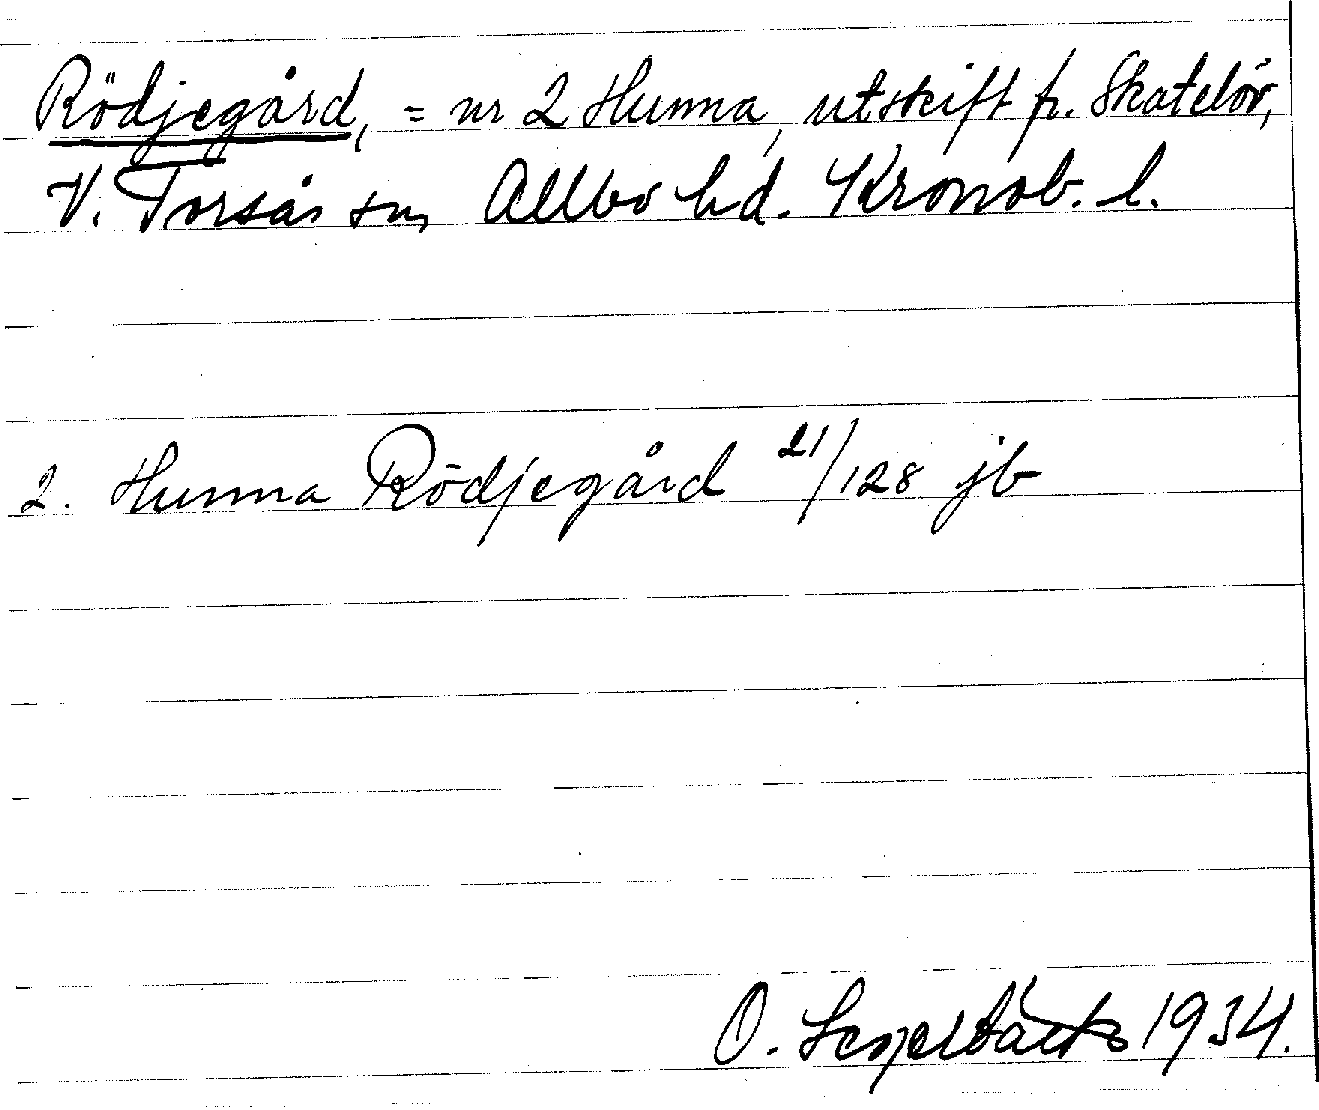 Rödjegård, = nr 2 Hunna, utskift fr. Skatelöv,
V. Torsås sn, Allbo hd. Kronob. l.
2. Hunna Rödjegård 21/128 jb
O. 1934.